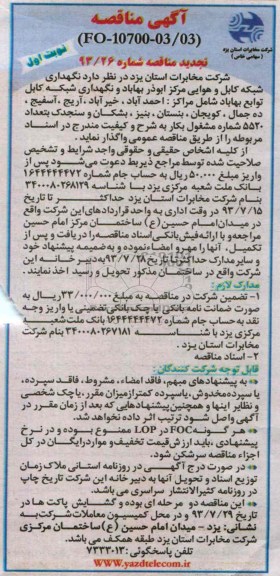 آگهی مناقصه
(FO-10700-03/03)
شرکت مخابرات استان یزد
(سهامی خاص)
نوبت اول
تجدید مناقصه شماره ۹۳/۲۶
شرکت مخابرات استان یزد در نظر دارد نگهداری
شبکه کابل و هوایی مرکز ابوذر بهاباد و نگهداری شبکه کابل
توابع بهاباد شامل مراکز : احمد آباد ، خیر آباد ، آریج ، آسفیج ،
ده جمال ، کویجان ، بنستان ، بنیز ، بشکان و سنجدک بتعداد
۵۵۲۰ شماره مشغول بکار به شرح و کیفیت مندرج در اسناد
مربوطه را از طریق مناقصه عمومی واگذار نماید .
از کلیه اشخاص حقیقی و حقوقی واجد شرایط و تشخیص
صلاحیت شده توسط مراجع ذیربط دعوت می‌شود پس از
واریز مبلغ ۵۰،۰۰۰ ریال به حساب جام شماره ۱۶۴۴۴۴۴۴۷۲
بانک ملت شعبه مرکزی یزد با شناسه ۳۴۰۰۰۸۰۲۶۸۱۲۹
بنام شرکت مخابرات استان یزد حداکثر تا تاریخ
۹۳/۷/۱۵ در وقت اداری به واحد قراردادهای این شرکت واقع
در میدان امام حسین (ع) ساختمان مرکز امام حسین
مراجعه و با ارائه فیش بانکی اسناد مناقصه را دریافت و پس از
تکمیل ، آنها را مهر و امضاء نموده و به ضمیمه پیشنهاد خود
و سایر مدارک حداکثر تا تاریخ ۹۳/۷/۲۸ به دبیر خانه این
شرکت واقع در ساختمان مذکور تحویل و رسید اخذ نمایند .
مدارک لازم :
۱- تضمین شرکت در مناقصه به مبلغ ۳۳/۰۰۰/۰۰۰ ریال به
صورت ضمانت نامه بانکی یا چک بانکی تضمینی یا واریز وجه
نقد به حساب جام شماره ۱۶۴۴۴۴۴۴۷۲ بانک ملت شعبه
مرکزی یزد با شناسه ۳۴۰۰۰۸۰۲۶۷۱۸۱ بنام شرکت
مخابرات استان یزد .
۲- اسناد مناقصه
قابل توجه شرکت کنندگان :
به پیشنهادهای مبهم ، فاقد امضاء ، مشروط ، فاقد سپرده ،
یا سپرده مخدوش ، یا سپرده کمتر از میزان مقرر ، یا چک شخصی
و نظایر اینها و همچنین پیشنهادهایی که بعد از زمان مقرر در
آگهی واصل شود ترتیب اثر داده نخواهد شد .
هر گونه FOC در LOP ممنوع بوده و در نرخ
پیشنهادی ، باید ارزش قیمت تخفیف و موارد رایگان در کل
اجزاء مناقصه سرشکن شود .
در صورت درج آگهی در روزنامه استانی ملاک زمان
توزیع اسناد و تحویل آنها به دبیر خانه این شرکت تاریخ چاپ
در روزنامه کثیرالانتشار سراسری می باشد .
این مناقصه دو مرحله ای بوده و گشایش پاکت ها در
تاریخ ۹۳/۷/۲۹ و در محل کمیسیون معاملات شرکت به
نشانی : یزد - میدان امام حسین (ع) ساختمان مرکزی
شرکت مخابرات استان یزد طبقه همکف می باشد .
تلفن پاسخگوئی : ۷۳۳۳۰۱۳
www.yazdtelecom.ir